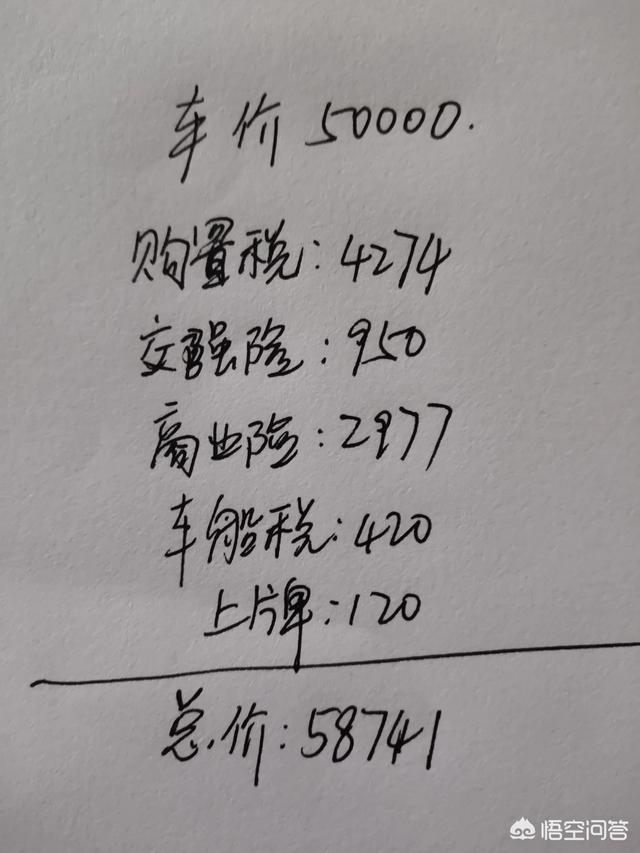 车价 50000.
购置税:4274
交强险:950
商业险:2977
车船税:420
上牌:120
总价:58741
悟空问答